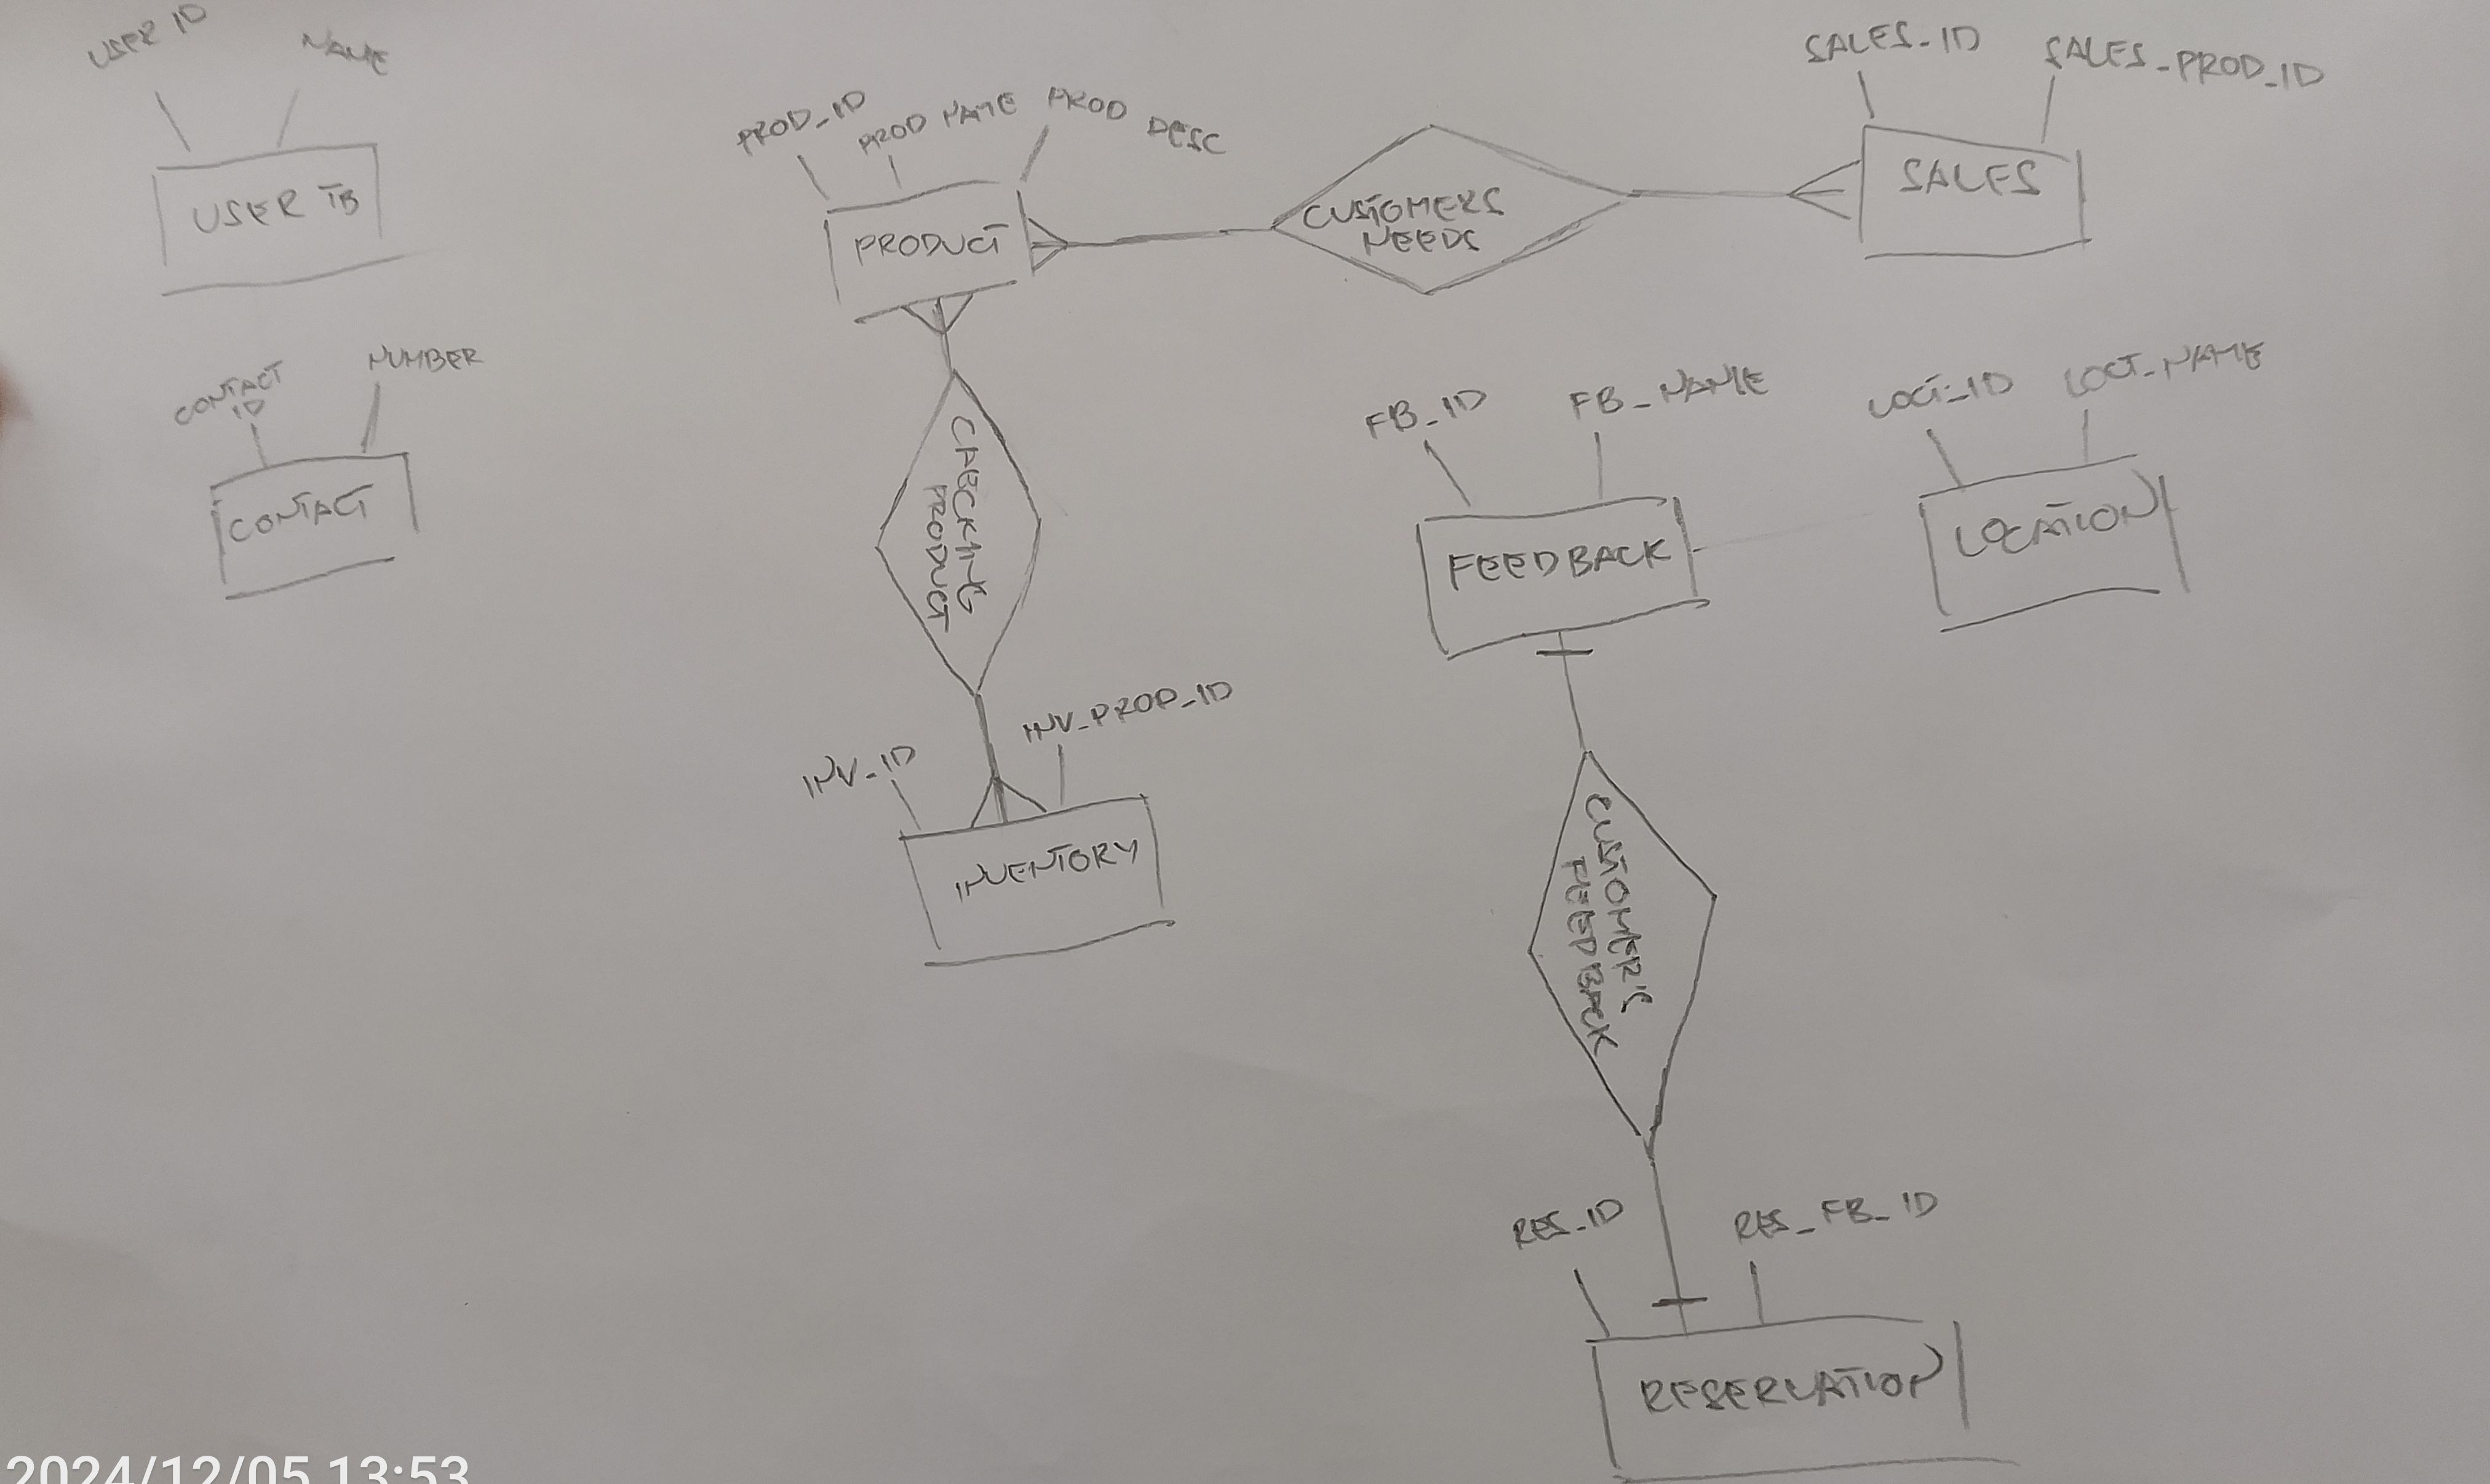 USER ID
NAME
USER TB
CONTACT
ID
NUMBER
CONTACT
PROD_ID
PROD NAME
PROD DESC
PRODUCT
CUSTOMERS
NEEDS
SALES_ID
SALES_PROD_ID
SALES
CHECKING
PRODUCT
INV_ID
INV_PROD_ID
INVENTORY
FB_ID
FB_NAME
FEEDBACK
LOCT_ID
LOCT_NAME
LOCATION
CUSTOMER'S
FEEDBACK
RES_ID
RES_FB_ID
RESERVATION
2024/12/05 13:53